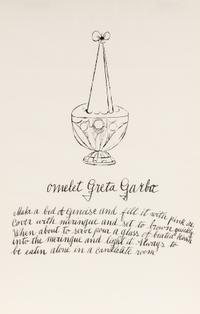 omelet Greta Garbo
Make a bed of Genoise and fill it with pink ice.
Cover with meringue and set to brown quickly
When about to serve pour a glass of heated
into the meringue and light it. Always to
be eatin alone in a candlelite room